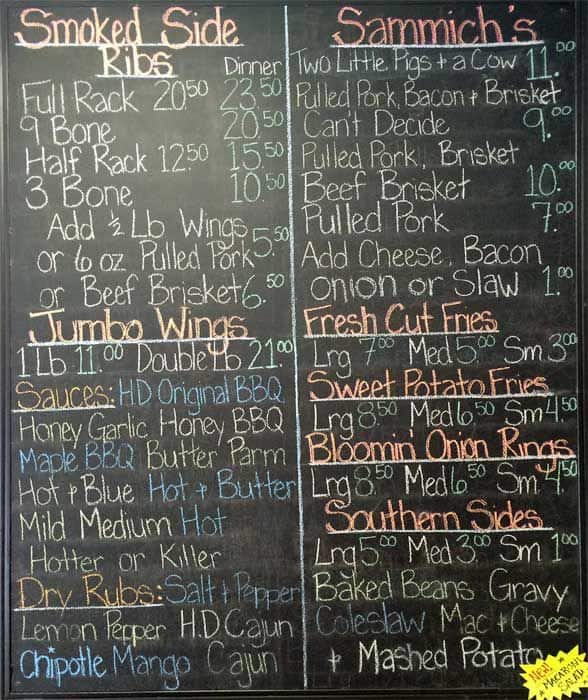 Smoked Side
Ribs Dinner
Full Rack 20.50 23.50
9 Bone 20.50
Half Rack 12.50 15.50
3 Bone 10.50
Add ½ Lb Wings
or 6 oz Pulled Pork 5.50
or Beef Brisket 6.50
Jumbo Wings
1 Lb 11.00 Double Lb 21.00
Sauces: HD Original BBQ
Honey Garlic Honey BBQ
Maple BBQ Butter Parm
Hot + Blue Hot + Butter
Mild Medium Hot
Hotter or Killer
Dry Rubs: Salt + Pepper
Lemon Pepper H.D Cajun
Chipotle Mango Cajun
Sammich's
Two Little Pigs + a Cow 11.00
Pulled Pork, Bacon + Brisket
Can't Decide 9.00
Pulled Pork, Brisket
Beef Brisket 10.00
Pulled Pork 7.00
Add Cheese, Bacon
Onion or Slaw 1.00
Fresh Cut Fries
Lrg 7.00 Med 5.00 Sm 3.00
Sweet Potato Fries
Lrg 8.50 Med 6.50 Sm 4.50
Bloomin' Onion Rings
Lrg 8.50 Med 6.50 Sm 4.50
Southern Sides
Lrg 5.00 Med 3.00 Sm 1.00
Baked Beans Gravy
Coleslaw Mac + Cheese
+ Mashed Potato
New
Macaroni
Salad